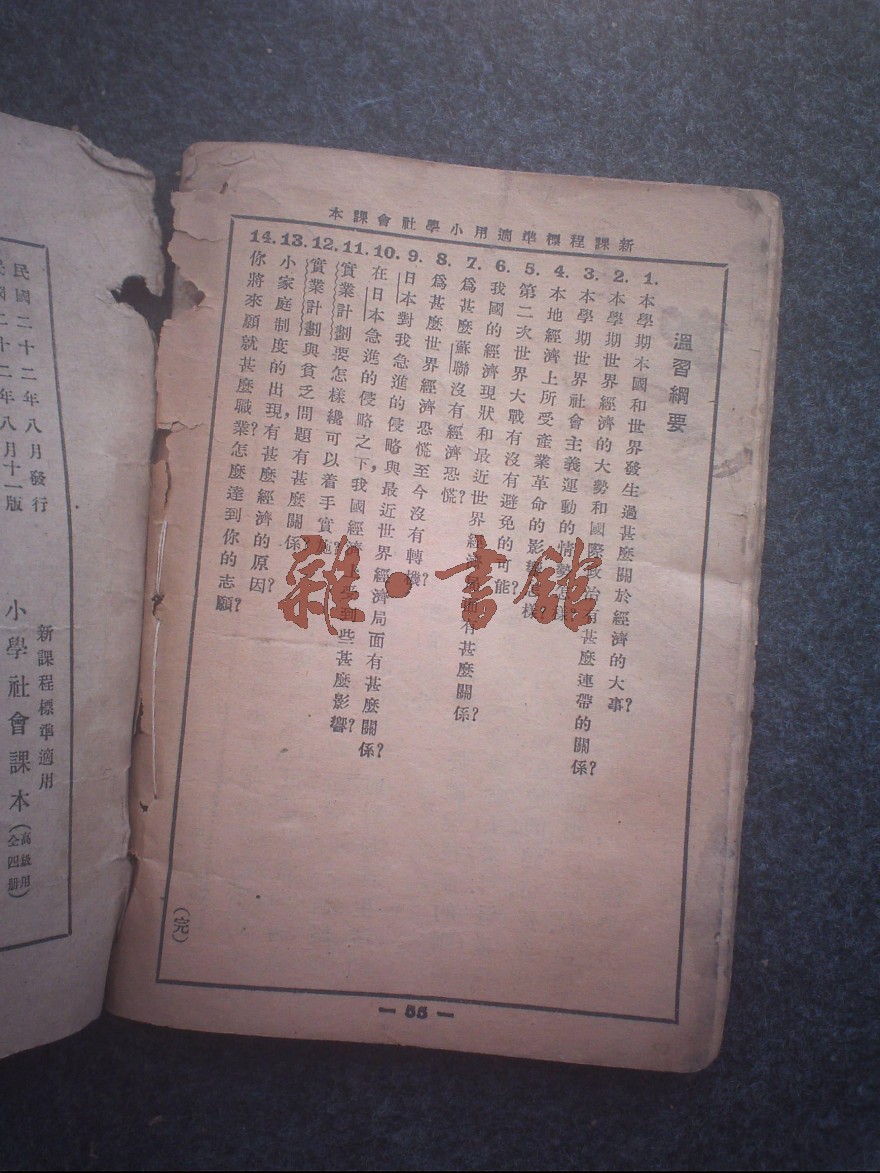 新課程標準適用小學社會課本
溫習綱要
1. 本學期本國和世界發生過甚麼關於經濟的大事?
2. 本學期世界經濟的大勢和國際政治有甚麼連帶的關係?
3. 本學期世界社會主義運動的情勢怎樣?
4. 本地經濟上所受產業革命的影響怎樣?
5. 第二次世界大戰有沒有避免的可能?
6. 我國的經濟現狀和最近世界經濟局面有甚麼關係?
7. 爲甚麼蘇聯沒有經濟恐慌?
8. 爲甚麼世界經濟恐慌至今沒有轉機?
9. 日本對我急進的侵略與最近世界經濟局面有甚麼關係?
10. 在日本急進的侵略之下,我國經濟到些甚麼影響?
11. 實業計劃要怎樣纔可以着手實施?
12. 實業計劃與貧乏問題有甚麼關係?
13. 小家庭制度的出現,有甚麼經濟的原因?
14. 你將來願就甚麼職業?怎麼達到你的志願?
(完)
— 55 —
雜·書館
新課程標準適用
小學社會課本(高級用全四冊)
民國二十二年八月發行
國二十二年八月十一版